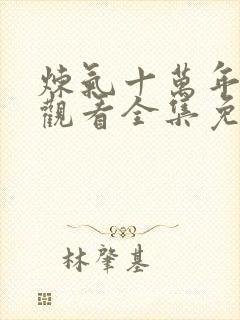 煉氣十萬年
觀看全集免
林肇基